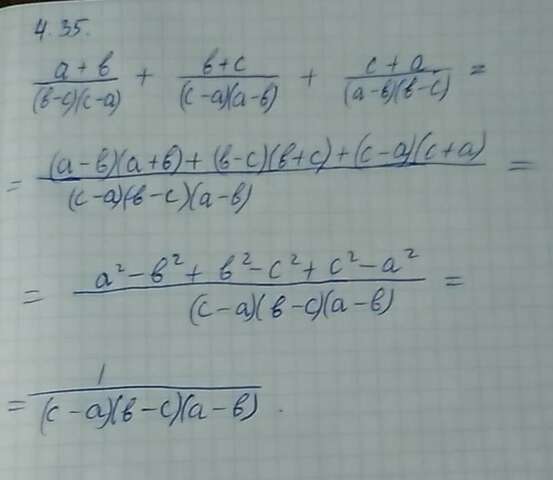 4.35.
(a+b)/((b-c)(c-a)) + (b+c)/((c-a)(a-b)) + (c+a)/((a-b)(b-c)) =
= ((a-b)(a+b)+(b-c)(b+c)+(c-a)(c+a))/((c-a)(b-c)(a-b)) =
= (a²-b²+b²-c²+c²-a²)/((c-a)(b-c)(a-b)) =
= 1/((c-a)(b-c)(a-b)).